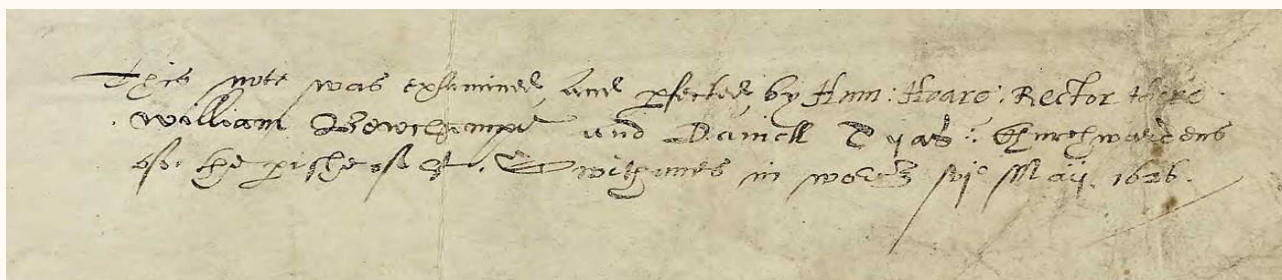 This note was exhamined, and pfected, by Hum: Hoare: Rector there
William Bewchampe and Daniell Dyas: Churchwardens
of the pishe of St. Swithunes in worc xvjo Maij. 1626.